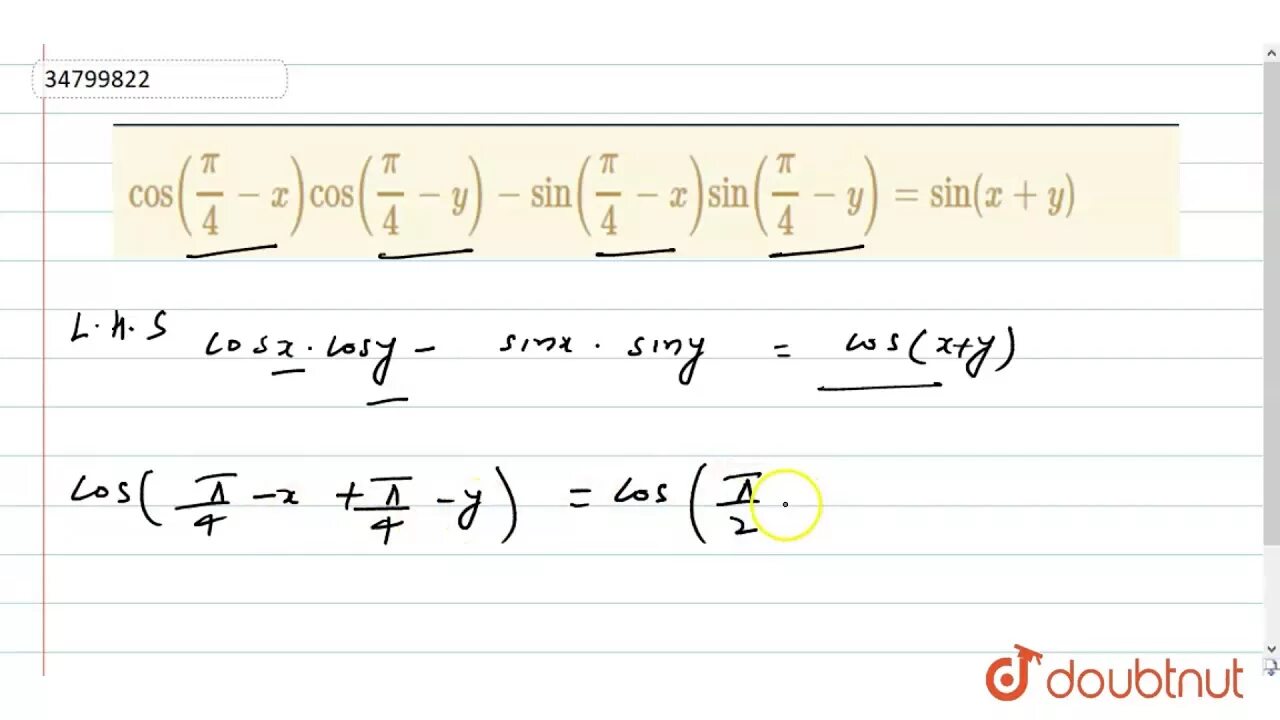 34799822
cos(π/4 − x)cos(π/4 − y) − sin(π/4 − x)sin(π/4 − y) = sin(x + y)
L.H.S cosx · cosy − sinx · siny = cos(x+y)
cos(π/4 − x + π/4 − y) = cos(π/2
doubtnut